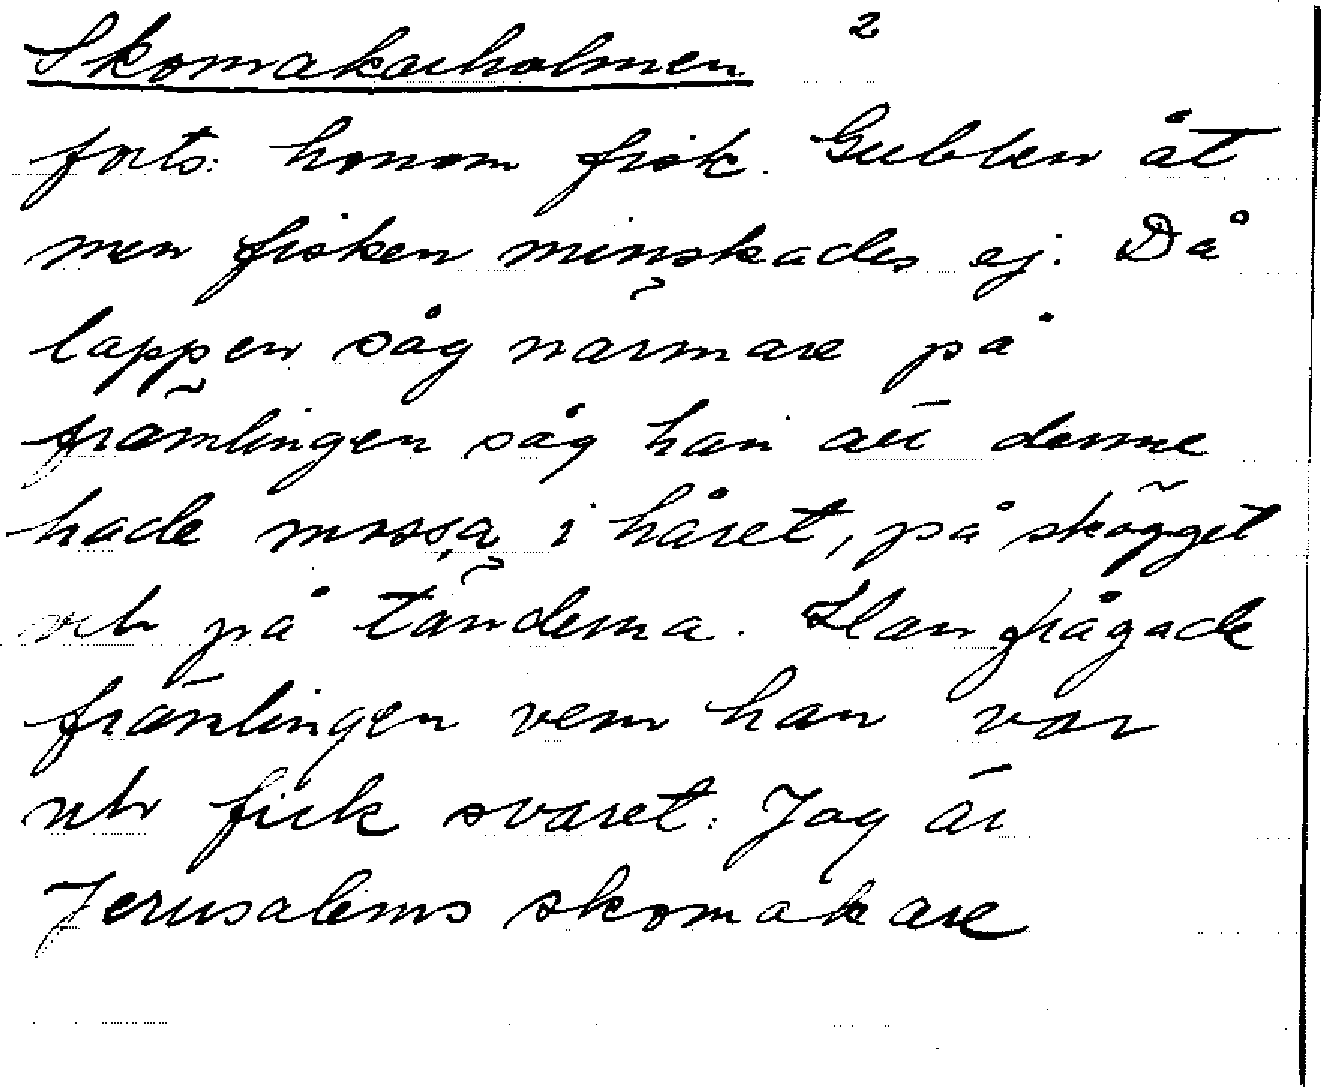 Skomakarholmen 2
forts: honom fisk. Gubben åt
men fisken minskades ej. Då
lappen såg närmare på
främlingen såg han att denne
hade mossa i håret, på skägget
och på tänderna. Han frågade
främlingen vem han var
och fick svaret: Jag är
Jerusalems skomakare